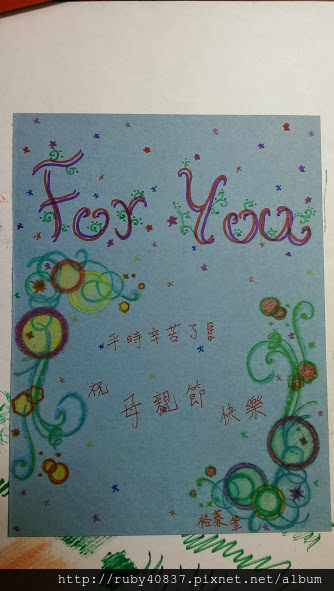 For You
平時辛苦了!!!
祝
母親節 快樂
http://ruby40837.pixnet.net/album